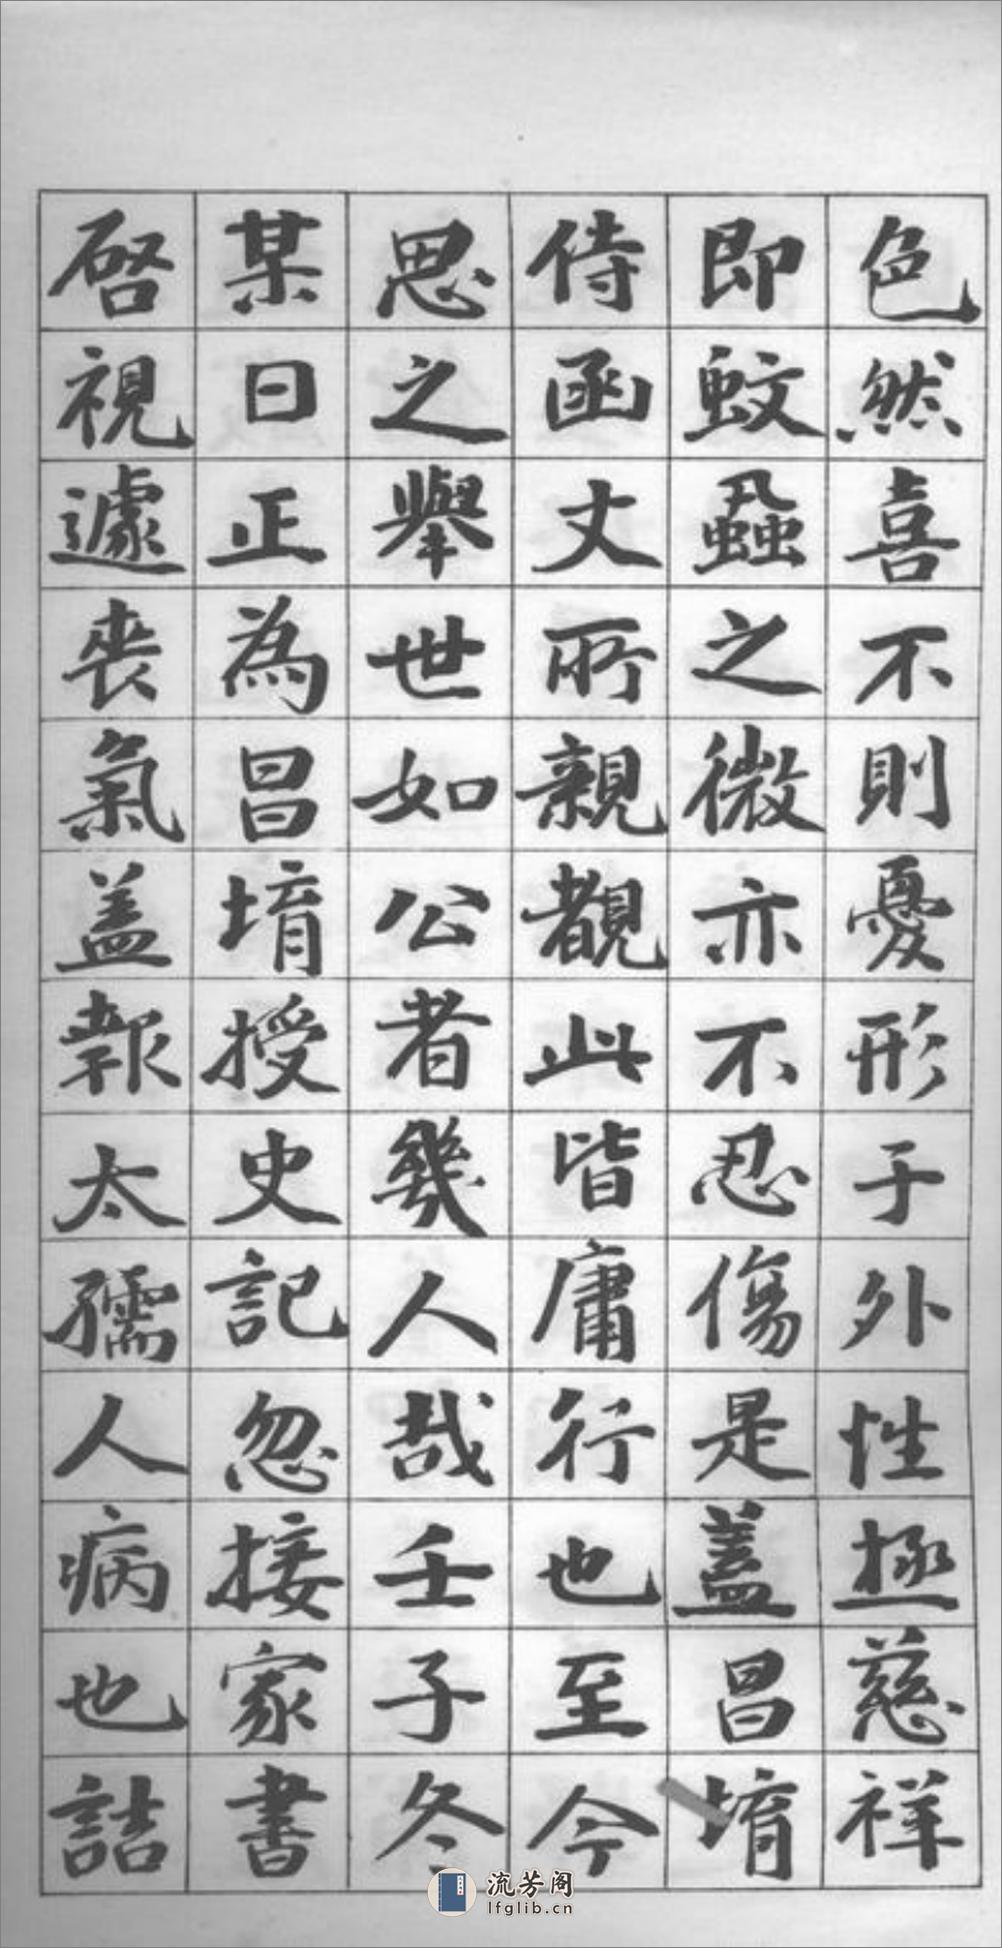 色然喜不則憂形于外性極慈祥
即蚊蝨之微亦不忍傷是蓋昌堉
侍函丈所親覩此皆庸行也至今
思之舉世如公者幾人哉壬子冬
某日正為昌堉授史記忽接家書
啓視遽喪氣盖報太孺人病也詰
流芳阁
lfglib.cn